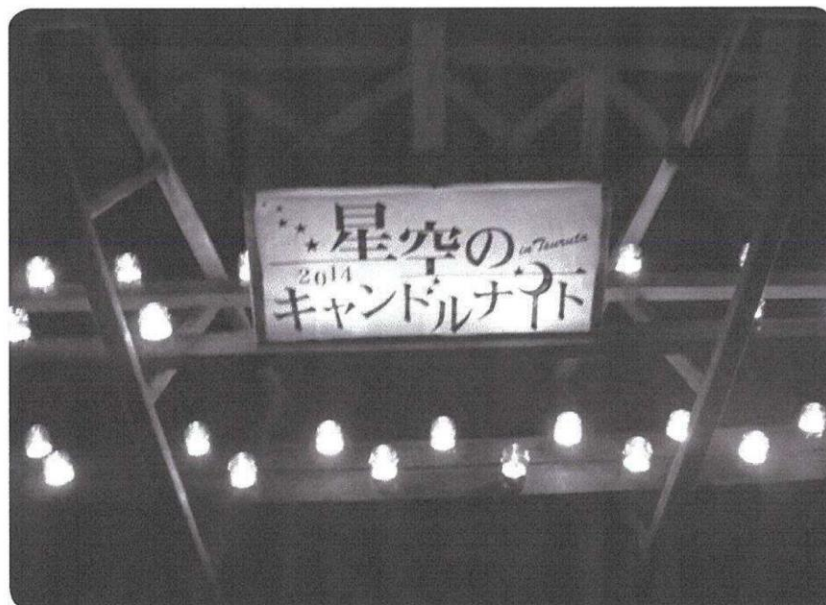 星空の in Tsuruta
2014
キャンドルナイト